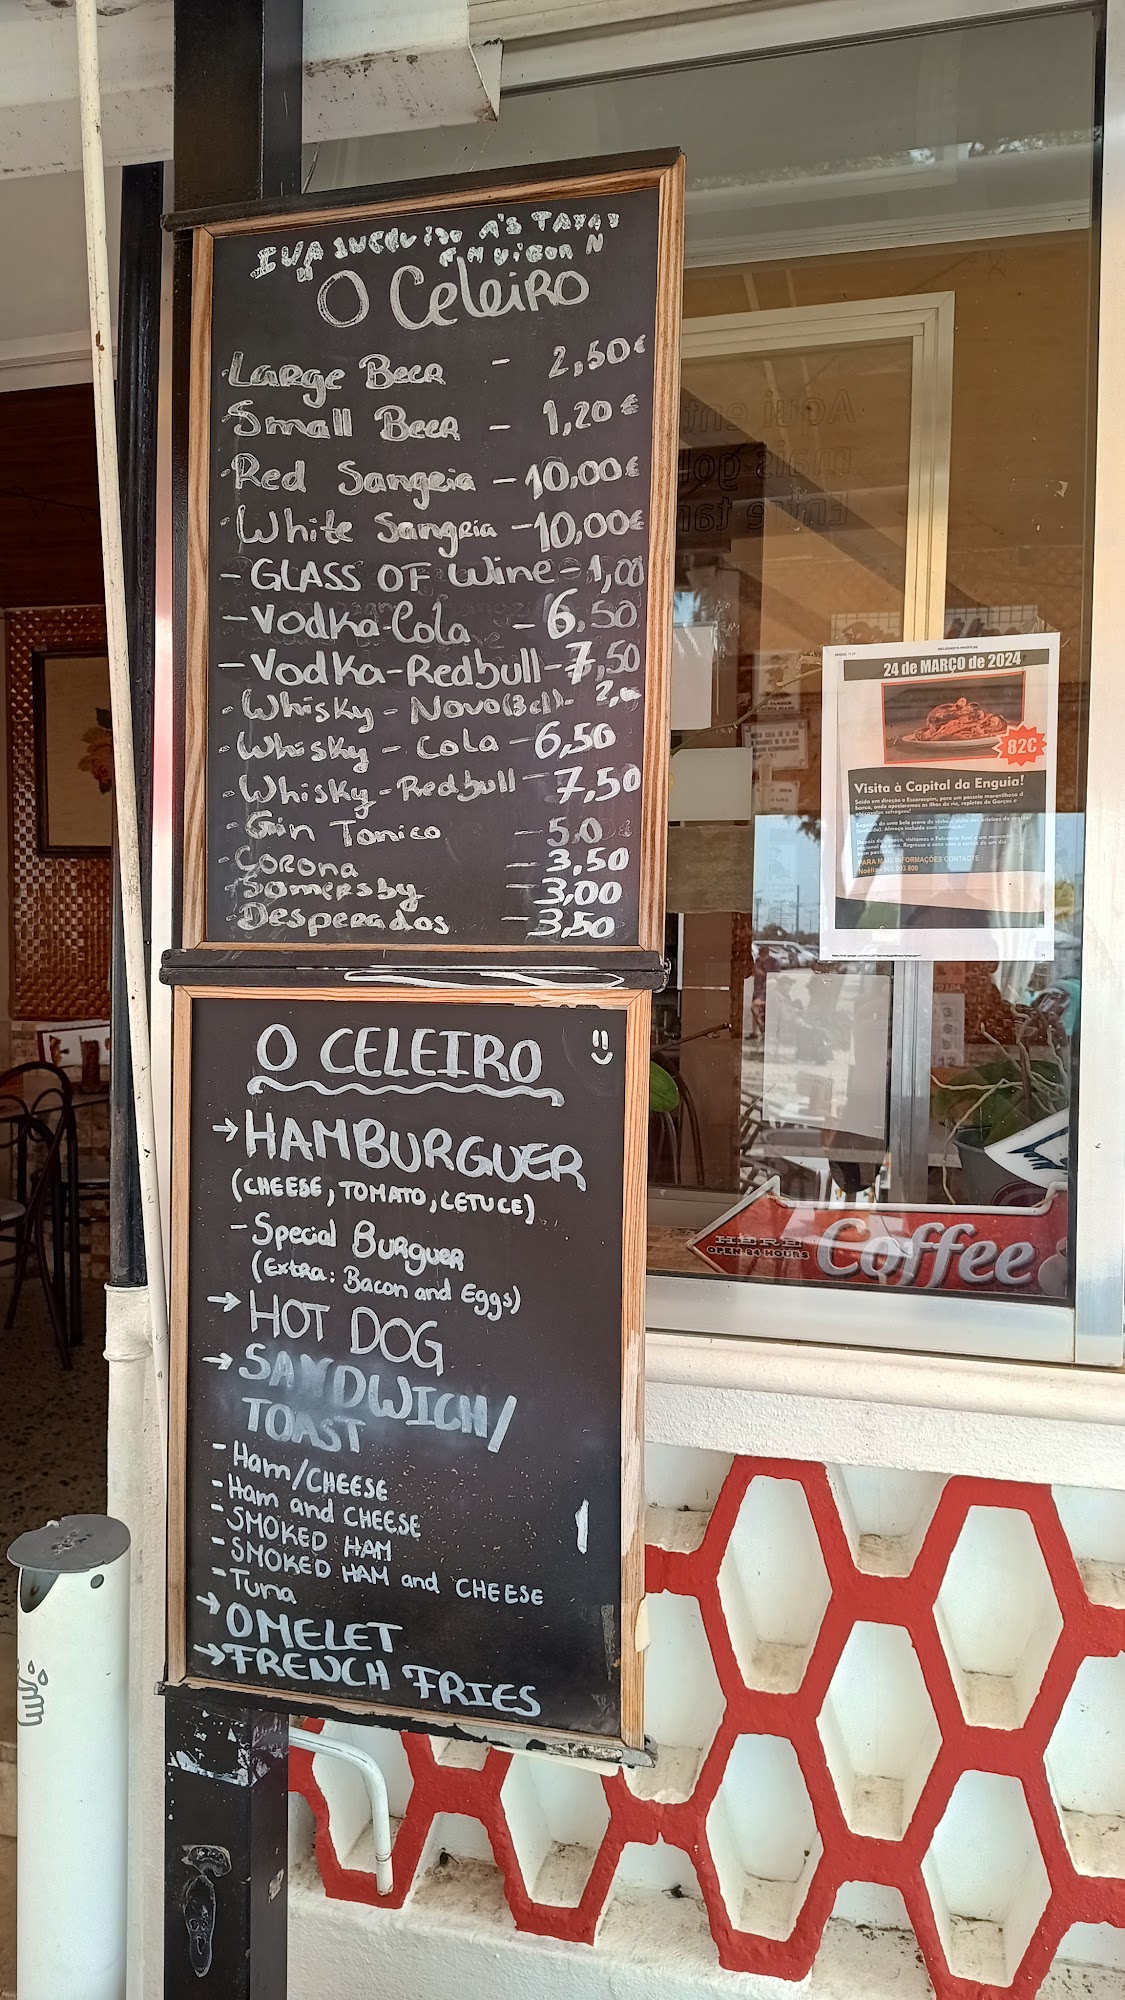 IVA INCLUIDO
O CeLeiRO
Large Beer - 2,50€
Small Beer - 1,20€
Red Sangria - 10,00€
White Sangria - 10,00€
- GLASS OF Wine - 1,00
- Vodka-Cola - 6,50
- Vodka-Redbull - 7,50
- Whisky - Novo (3cl) -
- Whisky - Cola - 6,50
- Whisky - Redbull - 7,50
- Gin Tonico - 5,0
- Corona - 3,50
- Somersby - 3,00
- Desperados - 3,50
O CELEIRO
→ HAMBURGUER
(CHEESE, TOMATO, LETUCE)
- Special Burguer
(Extra: Bacon and Eggs)
→ HOT DOG
→ SANDWICH/
TOAST
- Ham/CHEESE
- Ham and CHEESE
- SMOKED HAM
- SMOKED HAM and CHEESE
- Tuna
→ OMELET
→ FRENCH FRIES
24 de MARÇO de 2024
82€
Visita à Capital da Enguia!
PARA MAIS INFORMAÇÕES CONTACTE
HERE
OPEN 24 HOURS
Coffee